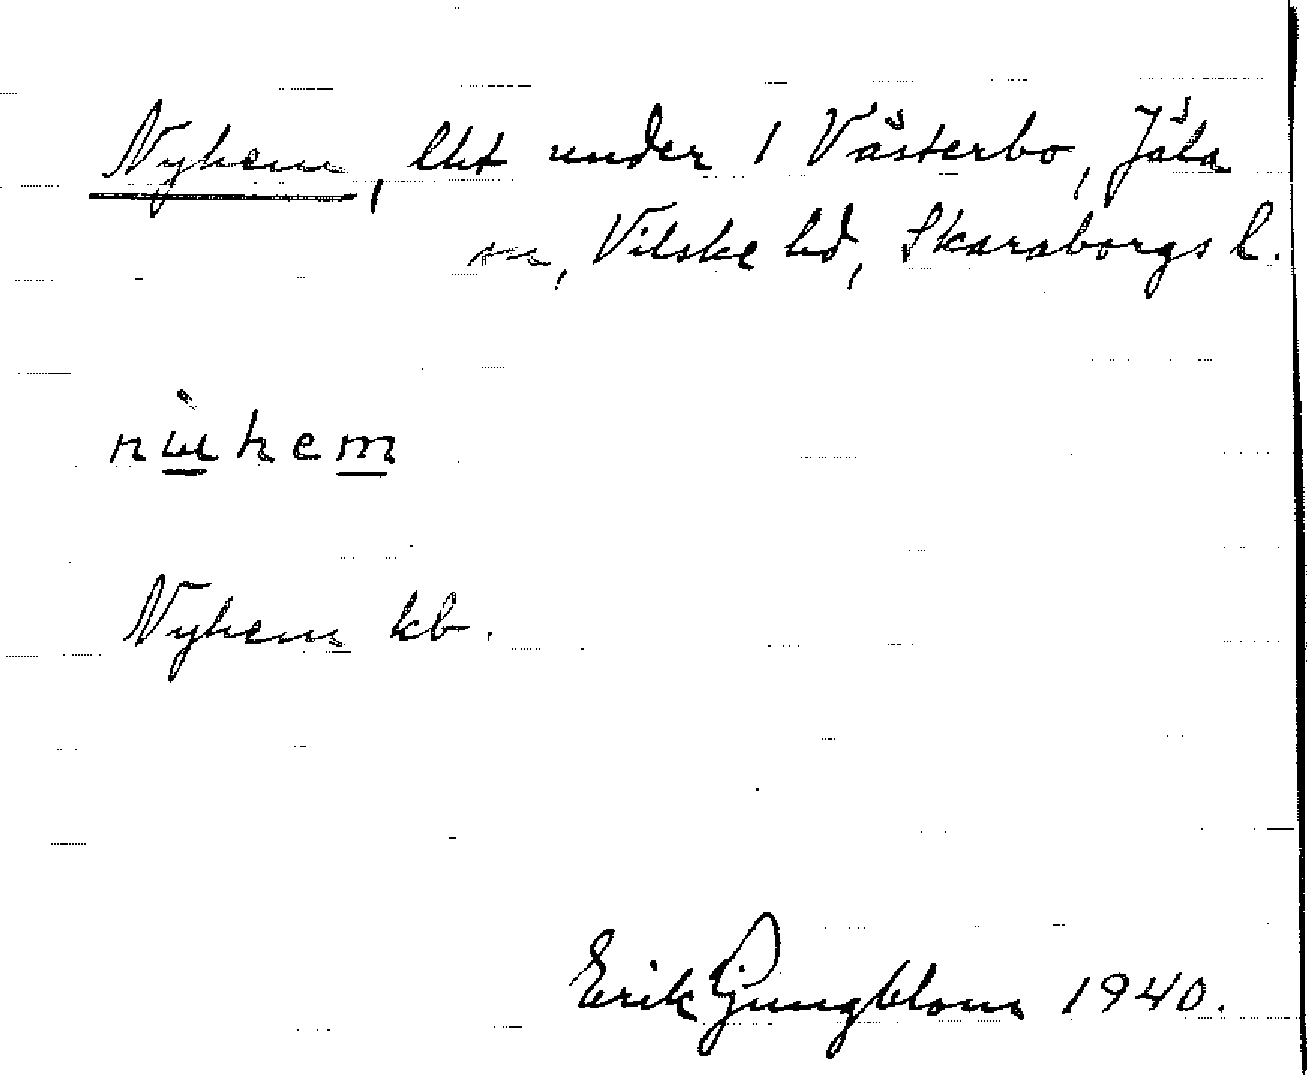 Nyhem, lht under 1 Västerbo, Jäla
sn, Vilske hd, Skaraborgs l.
nu̇hem
Nyhem kb.
Erik Ljungblom 1940.